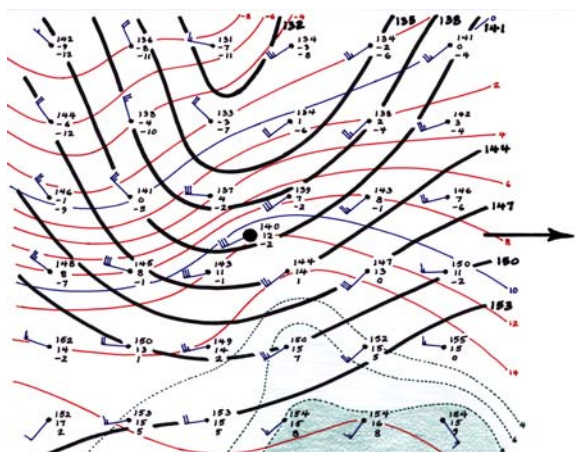 -8
-6
-4
132
135
138
0
141
142
-9
-12
136
-8
-11
131
-7
-11
134
-3
-8
134
-2
-6
141
0
-4
2
144
-6
-12
138
-4
-10
133
-3
-7
134
1
-6
138
2
-4
142
3
-4
4
144
6
146
-1
-9
141
0
-5
137
4
-2
139
7
-2
143
8
-1
146
7
-6
147
140
12
-2
8
148
8
-7
145
8
-1
143
11
-1
144
14
1
147
13
0
150
11
-2
150
10
153
12
152
14
-2
150
13
1
149
14
2
150
15
7
152
15
5
155
15
0
14
152
17
2
153
15
5
153
15
5
154
15
8
154
16
8
154
15
4
6